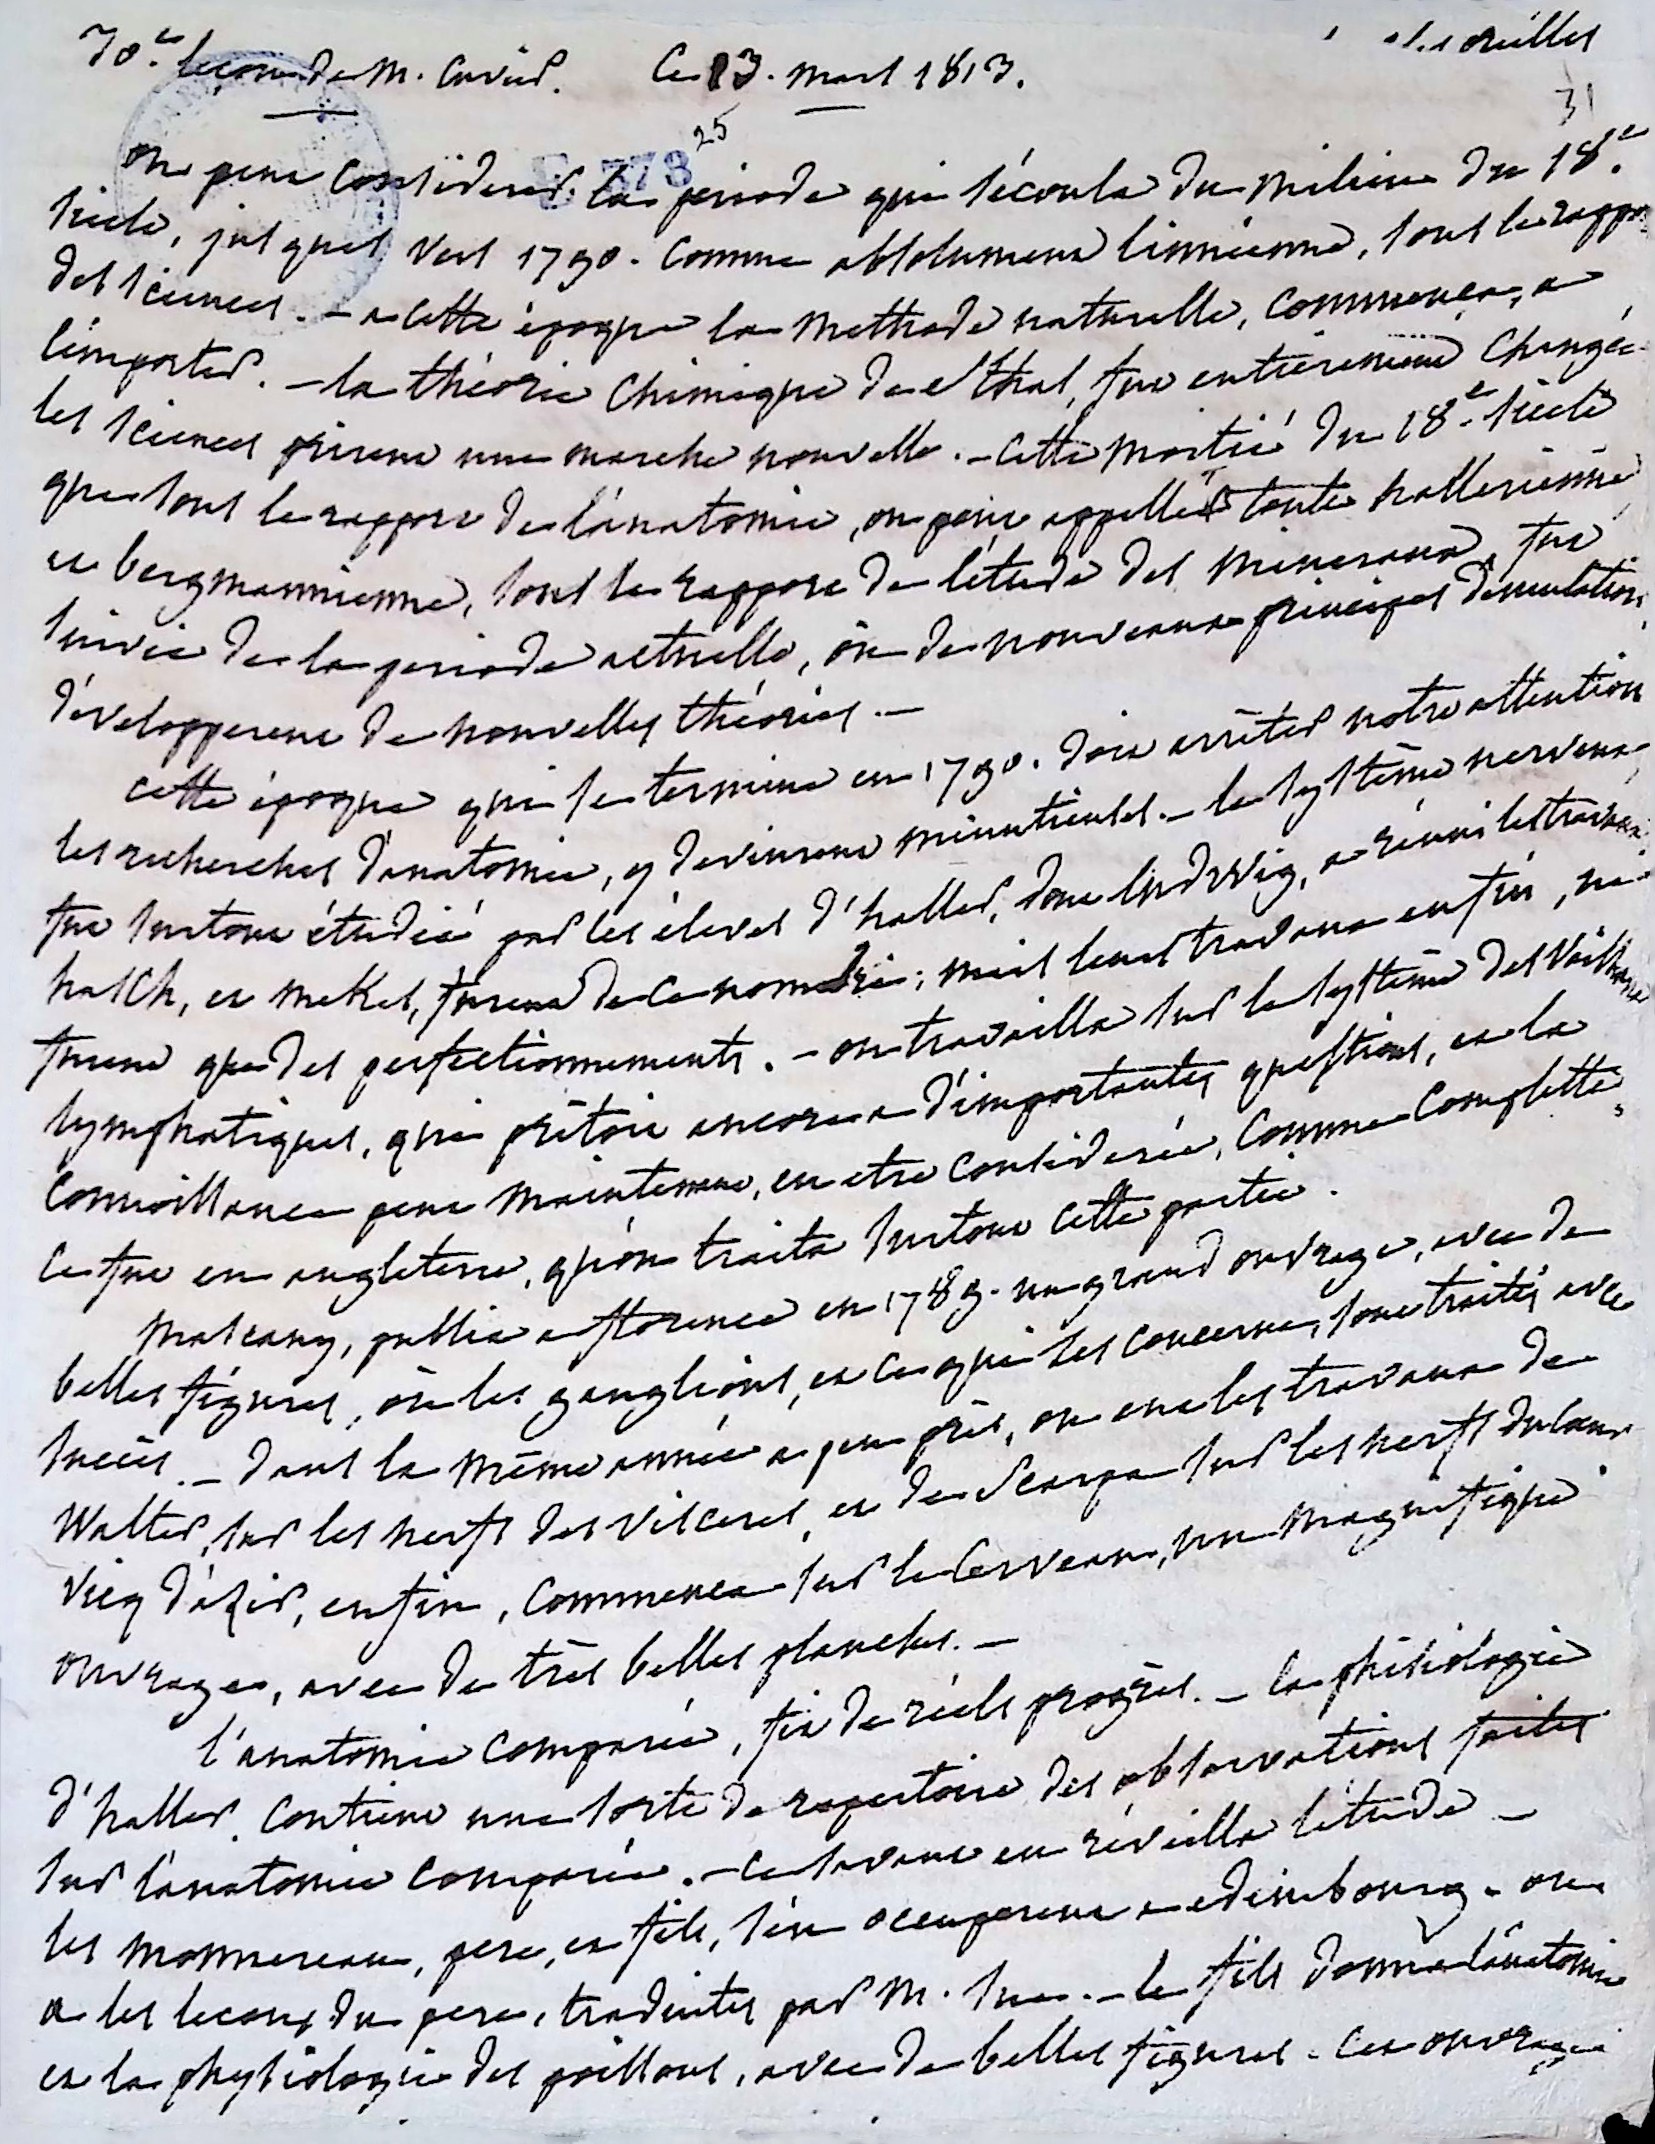 30.e leçon de M. Cuvier. Ce 13. mars 1813.
31
25
373
on peut considerer la periode qui s'écoula du milieu du 18.e
siecle, jusques vers 1790. comme absolument linnéenne, sous le rappo
des sciences. – a cette époque la methode naturelle, commença, a
l'emporter. – la théorie chimique de Sthal, fut entièrement changée
les sciences prirent une marche nouvelle. – cette moitié du 18.e siecle
que sous le rapport de l'anatomie, on peut appeller toute hallerienne
et bergmannienne, sous le rapport de l'étude des mineraux, fut
suivie de la periode actuelle, où de nouveaux principes d'emulation,
développerent de nouvelles théories. –
cette époque qui se termine en 1790. doit arrêter notre attention
les recherches d'anatomie, y devinrent minutieuses. – le systême nerveux,
fut surtout étudié par les élèves d'haller, dont Ludwig, a réuni les travaux
hasch, et mekel, furent de ce nombre; mais leurs travaux enfin, ne
furent que des perfectionnements. – on travailla sur le systême des vaisseaux
lymphatiques, qui prêtoit encore a d'importantes questions, et la
connoissance peut maintenant, en etre considerée, comme complette.
ce fut en angleterre, qu'on traita surtout cette partie.
Mascany, publia a florence en 1789. un grand ouvrage, avec de
belles figures, où les ganglions, et ce qui les concerne, sont traités avec
succès. – dans la même année a peu près, on eut les travaux de
Walter, sur les nerfs des visceres, et de Scarpa sur les nerfs du cœur
Vicq d'azir, enfin, commença sur le cerveau, un magnifique
ouvrage, avec de très belles planches. –
l'anatomie comparée, fit de réels progrès. – la phisiologie
d'haller. contient une sorte de repertoire des observations faites
sur l'anatomie comparée. – ce savant en réveilla l'étude –
les monnereau, pere, et fils, s'en occuperent a edimbourg. on
a les leçons du pere, traduites par M. Sue. – le fils donna l'anatomie
et la physiologie des poissons, avec de belles figures. cet ouvrage